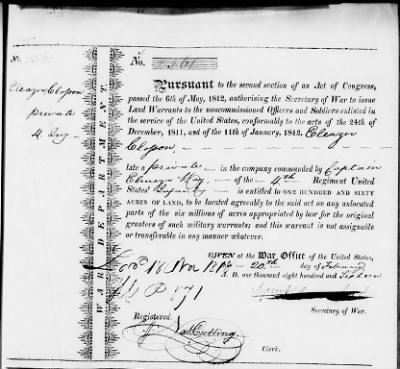 No. 2561
Eleazer Clopson
private
4 Inf
WAR DEPARTMENT.
Pursuant to the second section of an Act of Congress,
passed the 6th of May, 1812, authorising the Secretary of War to issue
Land Warrants to the noncommissioned Officers and Soldiers enlisted in
the service of the United States, conformably to the acts of the 24th of
December, 1811, and of the 11th of January, 1812, Eleazer
Clopson
late a private in the company commanded by Captain
Ebenezer Way, of the 4th Regiment United
States' Infantry is entitled to ONE HUNDRED AND SIXTY
ACRES OF LAND, to be located agreeably to the said act on any unlocated
parts of the six millions of acres appropriated by law for the original
grantees of such military warrants; and this warrant is not assignable
or transferable in any manner whatever.
GIVEN at the War Office of the United States,
18 Nov 20th day of February
A. D. one thousand eight hundred and
P 871
Secretary of War.
Registered.
Clerk.